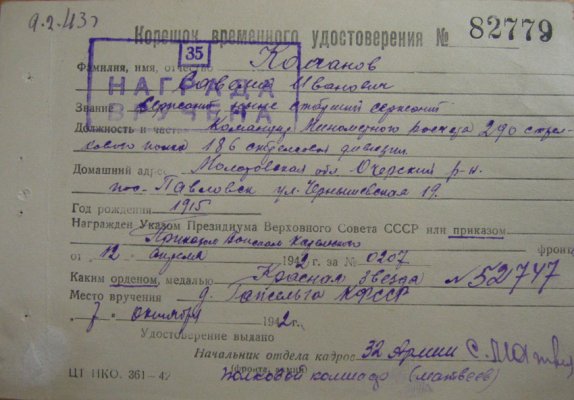 9.2.43г
Корешок временного удостоверения № 82779
35
НАГРАДА
ВРУЧЕНА
Фамилия, имя, отчество Колчанов
Иванович
Звание Сержант ныне старший сержант
Должность и часть Командир Минометного расчета 290 стрел-
кового полка 186 стрелковой дивизии
Домашний адрес Молотовская обл. Очерский р-н.
пос. Павловск ул. Чернышевская 19.
Год рождения 1915
Награжден Указом Президиума Верховного Совета СССР или приказом
Приказом Войскам Карельского фронта
от "12" апреля 1942 г. за № 0207
Каким орденом, медалью Красная Звезда №52747
Место вручения д. Гапсельга КФССР
"7" октября 1942г.
Удостоверение выдано
Начальник отдела кадров 32 Армии С. Матвеев
(фронта, армии)
Полковой комиссар (Матвеев)
ЦТ НКО. 361—42